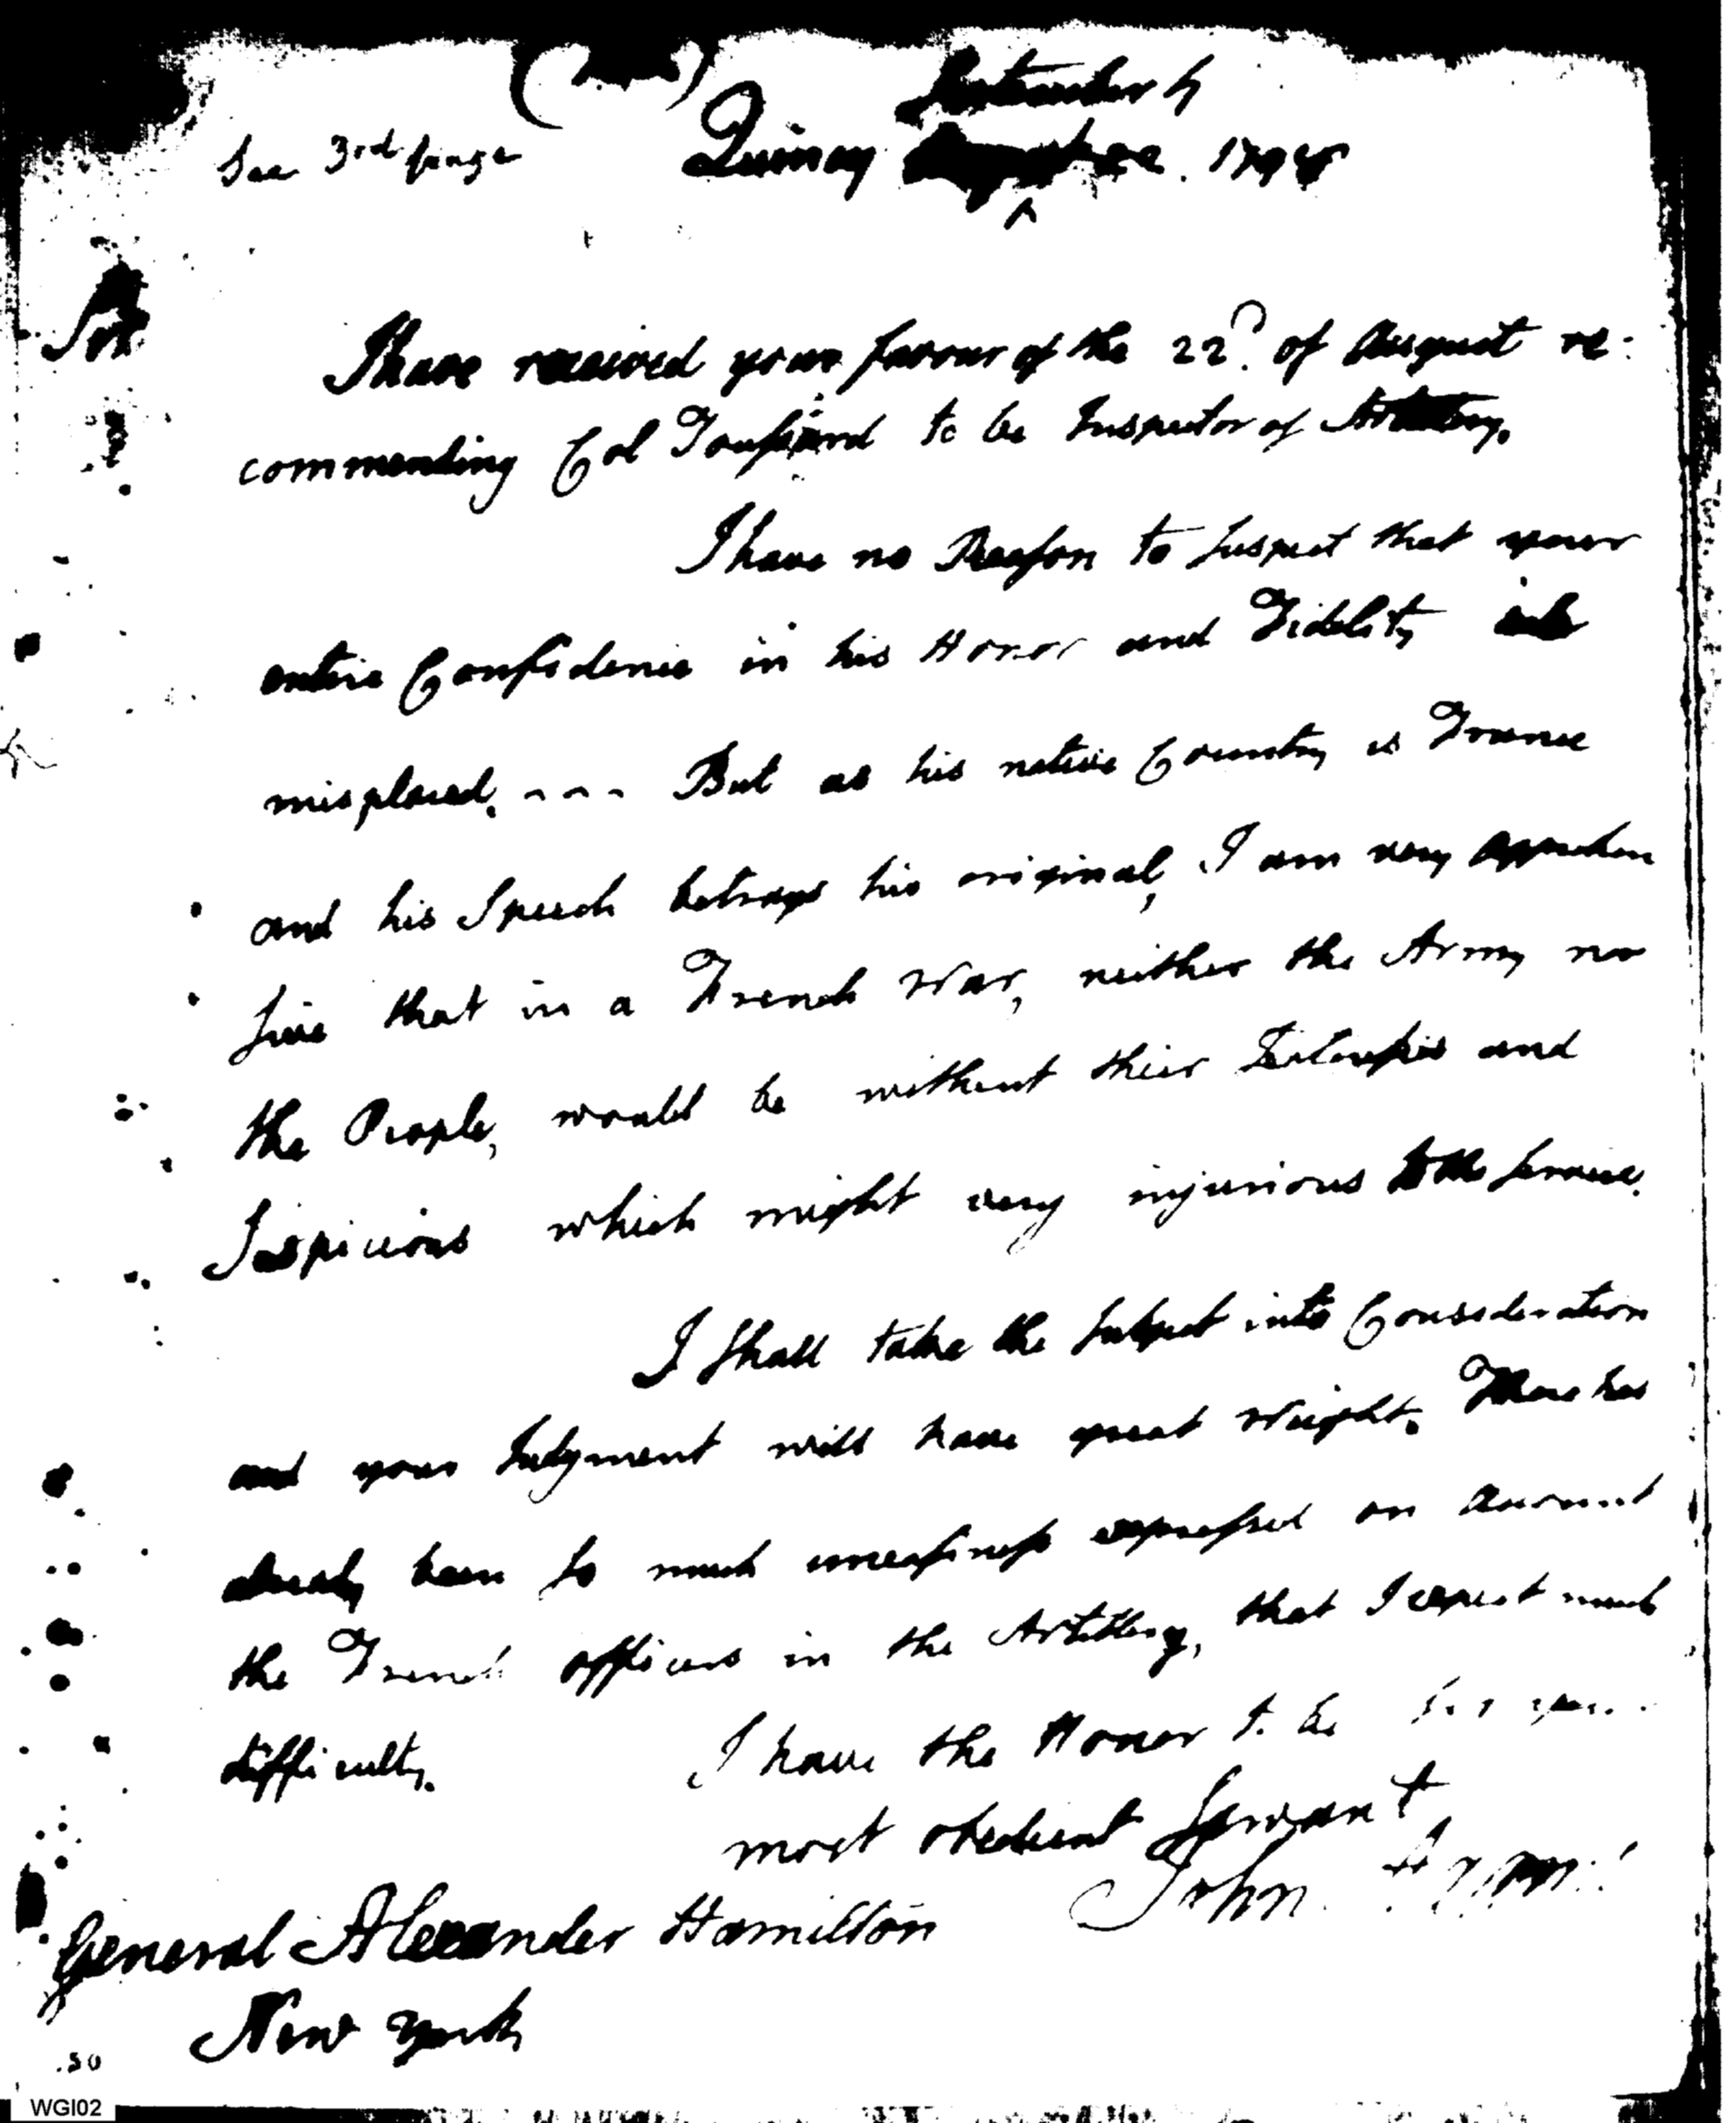 September 4
See 3rd page Quincy 1798
Sir
I have received your favour of the 22d. of August re:
commending Col Toussard to be Inspector of Artillery.
I have no Reason to suspect that your
entire Confidence in his Honor and Fidelity is
misplaced. - - - But as his native Country is France
and his Speech betrays his original, I am very apprehen
sive that in a French War, neither the Army nor
the People, would be without their Jealousies and
Suspicions which might very injurious to the service.
I shall take the subject into Consideration
and your Judgment will have great Weight. There has
already been so much uneasiness expressed on account
the French officers in the Artillery, that I expect much
difficulty. I have the Honor to be Sir your
most obedient Servant
John Adams
General Alexander Hamilton
New York
.50
WGI02